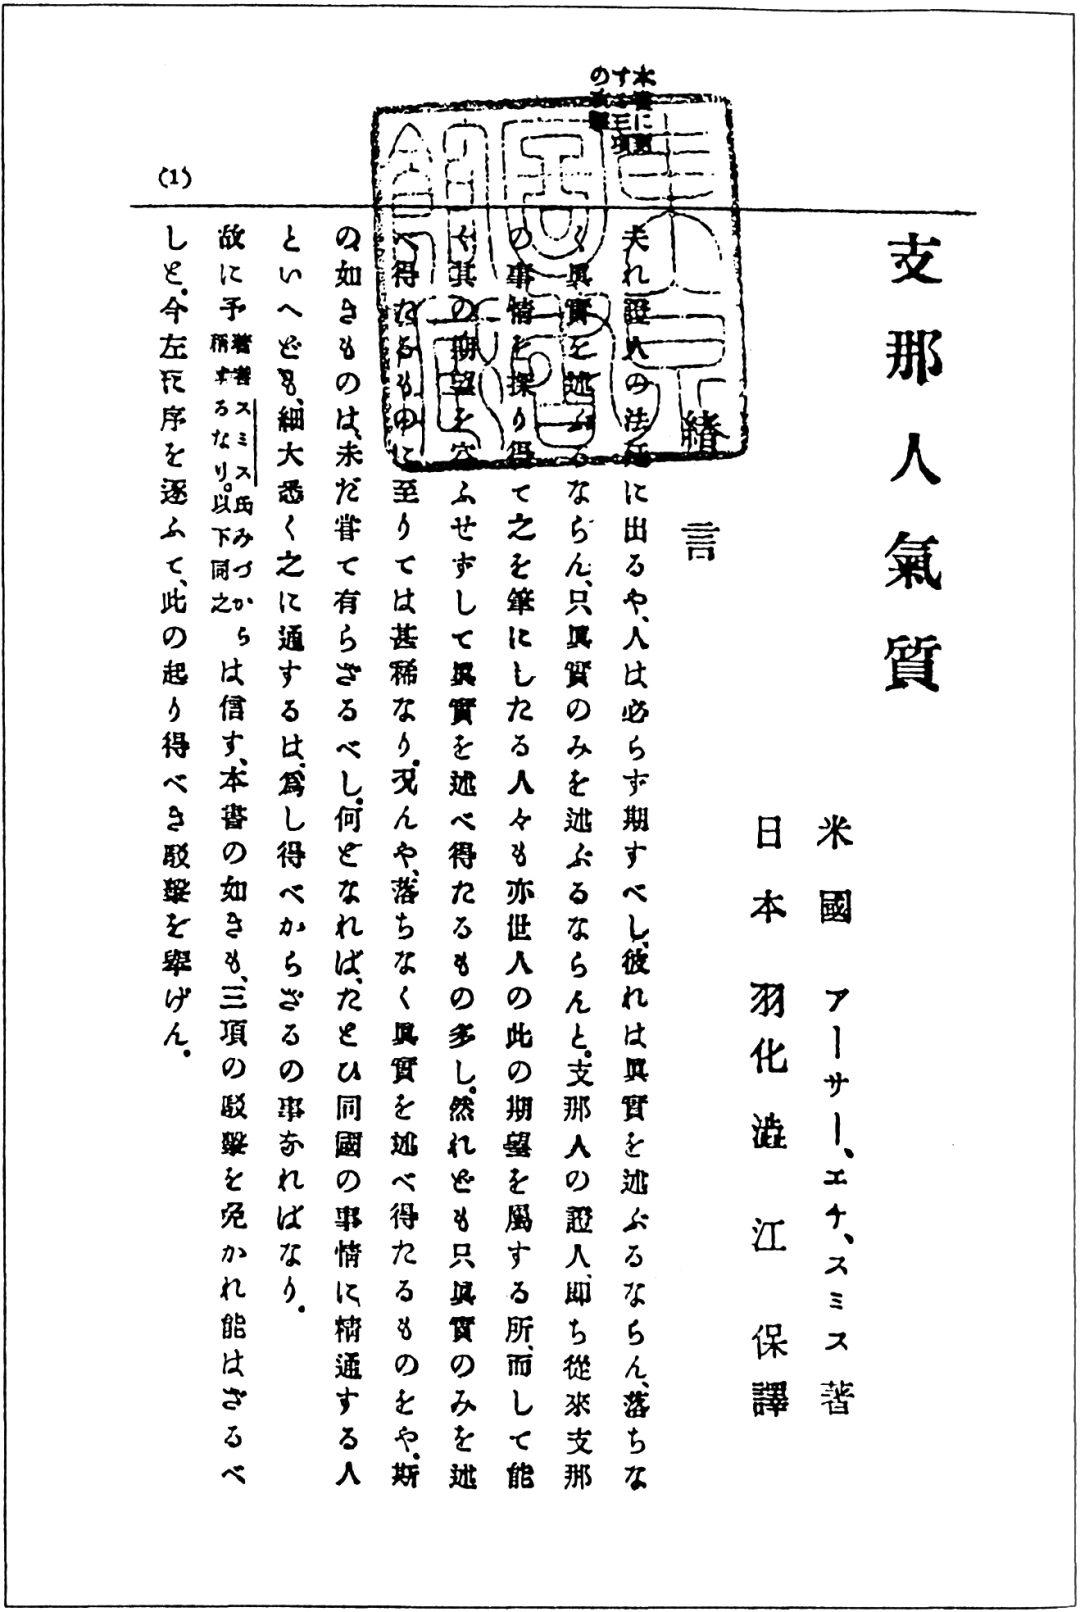 支那人氣質
米國 アーサー、エチ、スミス著
日本 羽化 澁江 保譯
緒言
夫れ證人の法廷に出るや、人は必らず期すべし、彼れは眞實を述ぶるならん、落ちな
く眞實を述ぶるならん、只眞實のみを述ぶるならんと。支那人の證人、即ち從來支那
の事情を探り得て之を筆にしたる人々も亦世人の此の期望を屬する所、而して能
く其の期望を空ふせずして眞實を述べ得たるもの多し。然れども只眞實のみを述
べ得たるものに至りては甚稀なり。况んや、落ちなく眞實を述べ得たるものをや。斯
の如きものは、未だ甞て有らざるべし。何となれば、たとひ同國の事情に精通する人
といへども、細大悉く之に通するは、爲し得べからざるの事なればなり。
故に予著者スミス氏みづから稱するなり。以下同之は信ず、本書の如きも、三項の駁擊を免かれ能はざるべ
しと。今左に序を逐ふて、此の起り得べき駁擊を擧げん。
(1)